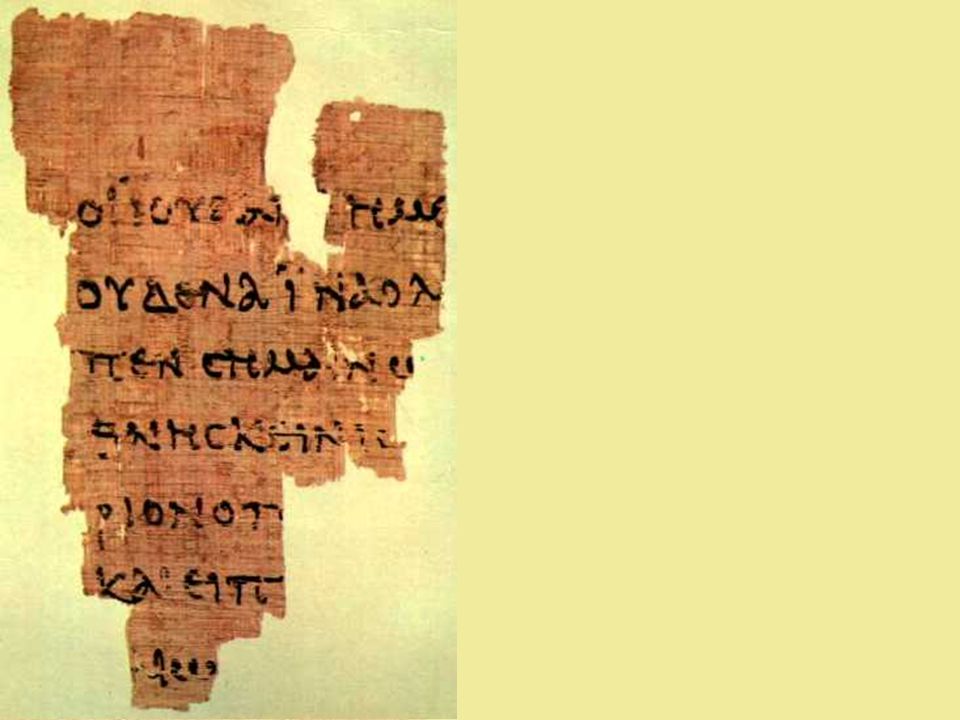 ΟΪΙΟΥΔΑΙ ΗΜΕ
ΟΥΔΕΝΑΪΝΑΟΛ
ΠΕΝϹΗΜΑΙΝΩ
ΘΝΗϹΚΕΙΝΙϹ
ΡΙΟΝΟΠ
ΚΑΙΕΙΠ